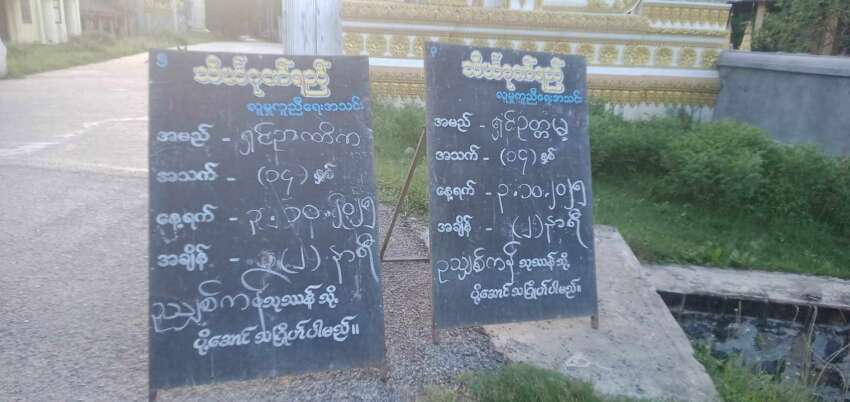 သိဃ်ဂုဏ်ရည်
လူမှုကူညီရေးအသင်း
အမည် - ရှင်ဉာဏိက
အသက် - (၁၄) နှစ်
နေ့ရက် - ၃.၁၀.၂၀၂၅
အချိန် - (၂) နာရီ
ဥသျှစ်ကုန်းသုဿန်သို့
ပို့ဆောင်သင်္ဂြိုဟ်ပါမည်။
သိဃ်ဂုဏ်ရည်
လူမှုကူညီရေးအသင်း
အမည် - ရှင်ဥတ္တမ
အသက် - (၁၄) နှစ်
နေ့ရက် - ၃.၁၀.၂၀၂၅
အချိန် - (၂) နာရီ
ဥသျှစ်ကုန်းသုဿန်သို့
ပို့ဆောင်သင်္ဂြိုဟ်ပါမည်။